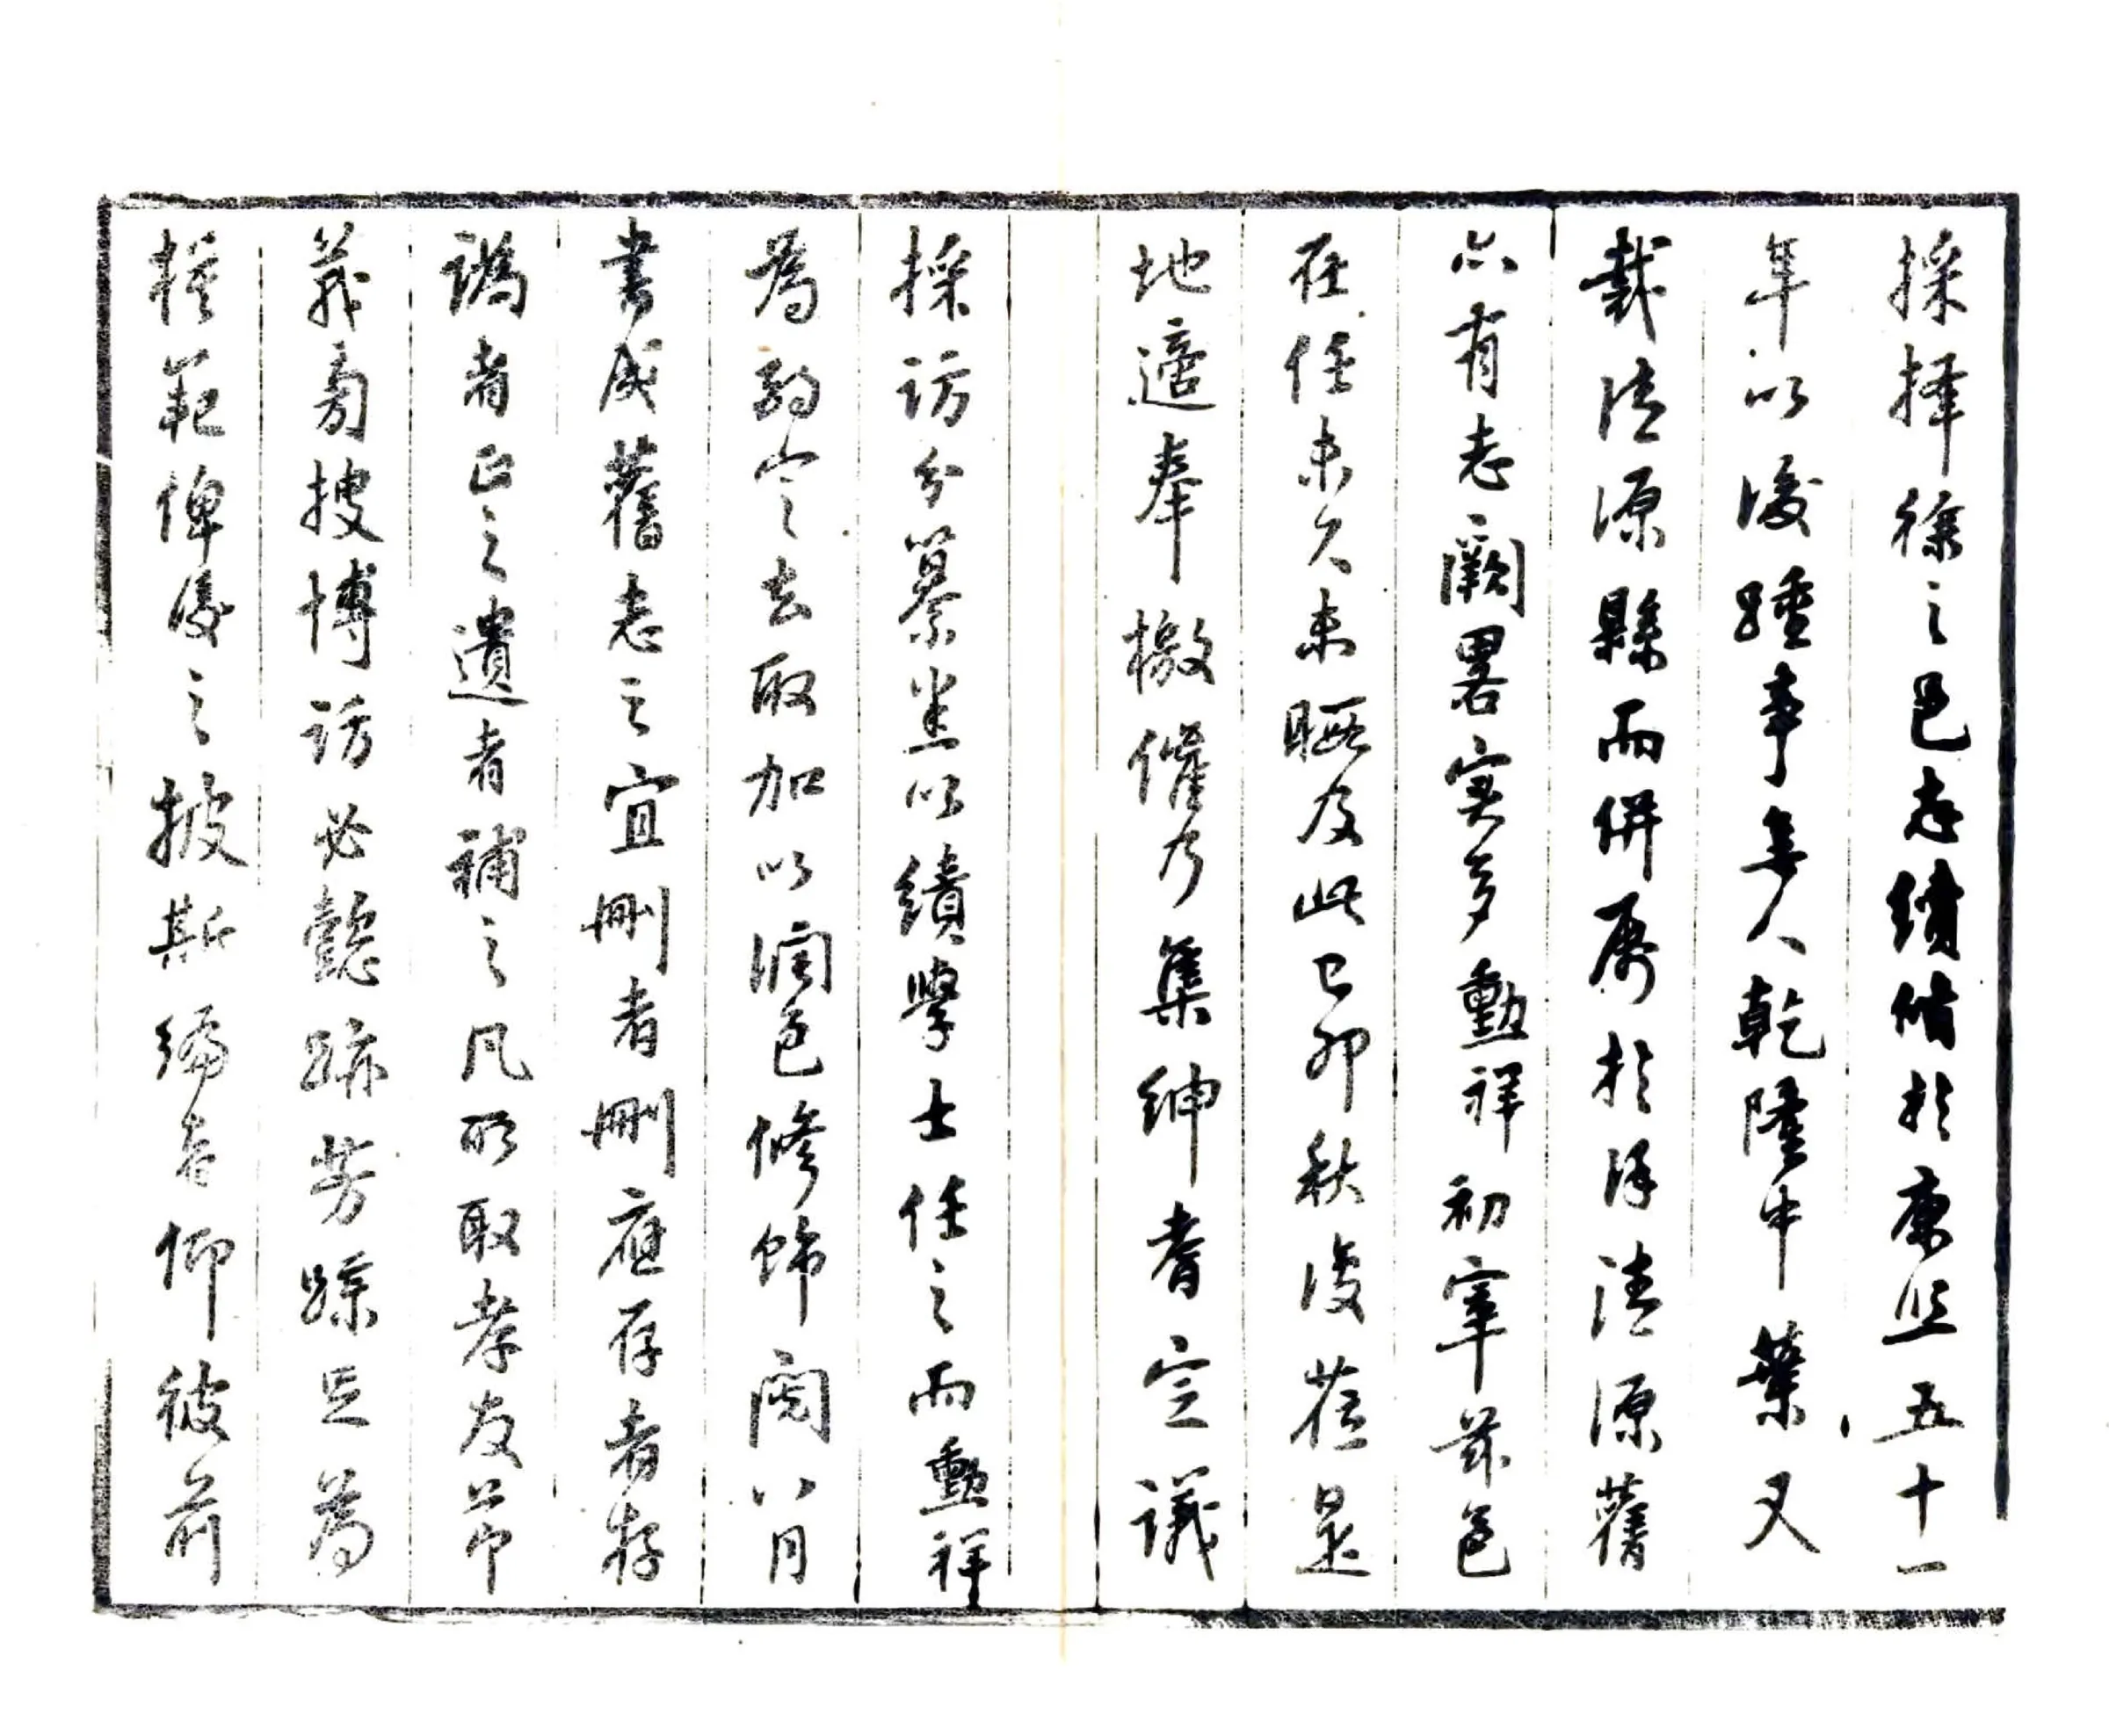 採擇徐之邑志續修於康熙五十一
年以後踵事無人乾隆中葉又
裁清源縣而併屬於徐清源舊
亦有志闕畧实多勳祥初宰茲邑
在任未久未暇及此己卯秋後蒞是
地適奉檄催乃集紳耆定議
採訪分纂悉以績學士任之而勳祥
為酌定去取加以潤色修飾閱八月
書成舊志之宜刪者刪應存者存
譌者正之遺者補之凡所取孝友節
義旁搜博訪必懿跡芳蹤足為
模範俾後之披斯編者仰彼前